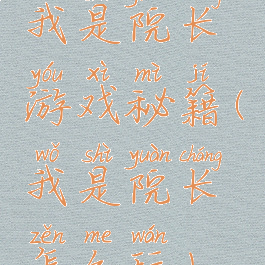 我是院长
yóu xì mì jí
游戏秘籍(
wǒ shì yuàn cháng
我是院长
zěn me wán
怎么玩)